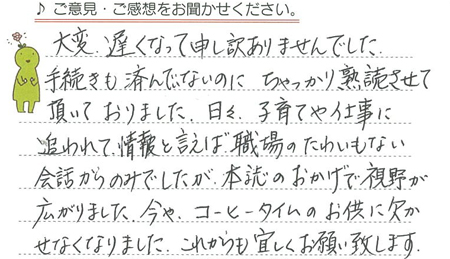 ♪ ご意見・ご感想をお聞かせください。
大変、遅くなって申し訳ありませんでした。
手続きも済んでいないのに ちゃっかり熟読させて
頂いて おりました。日々、子育てや仕事に
追われて、情報と言えば、職場のたわいもない
会話からのみでしたが、本誌のおかげで視野が
広がりました。今や、コーヒータイムのお供に欠か
せなくなりました。これからも宜しくお願い致します。